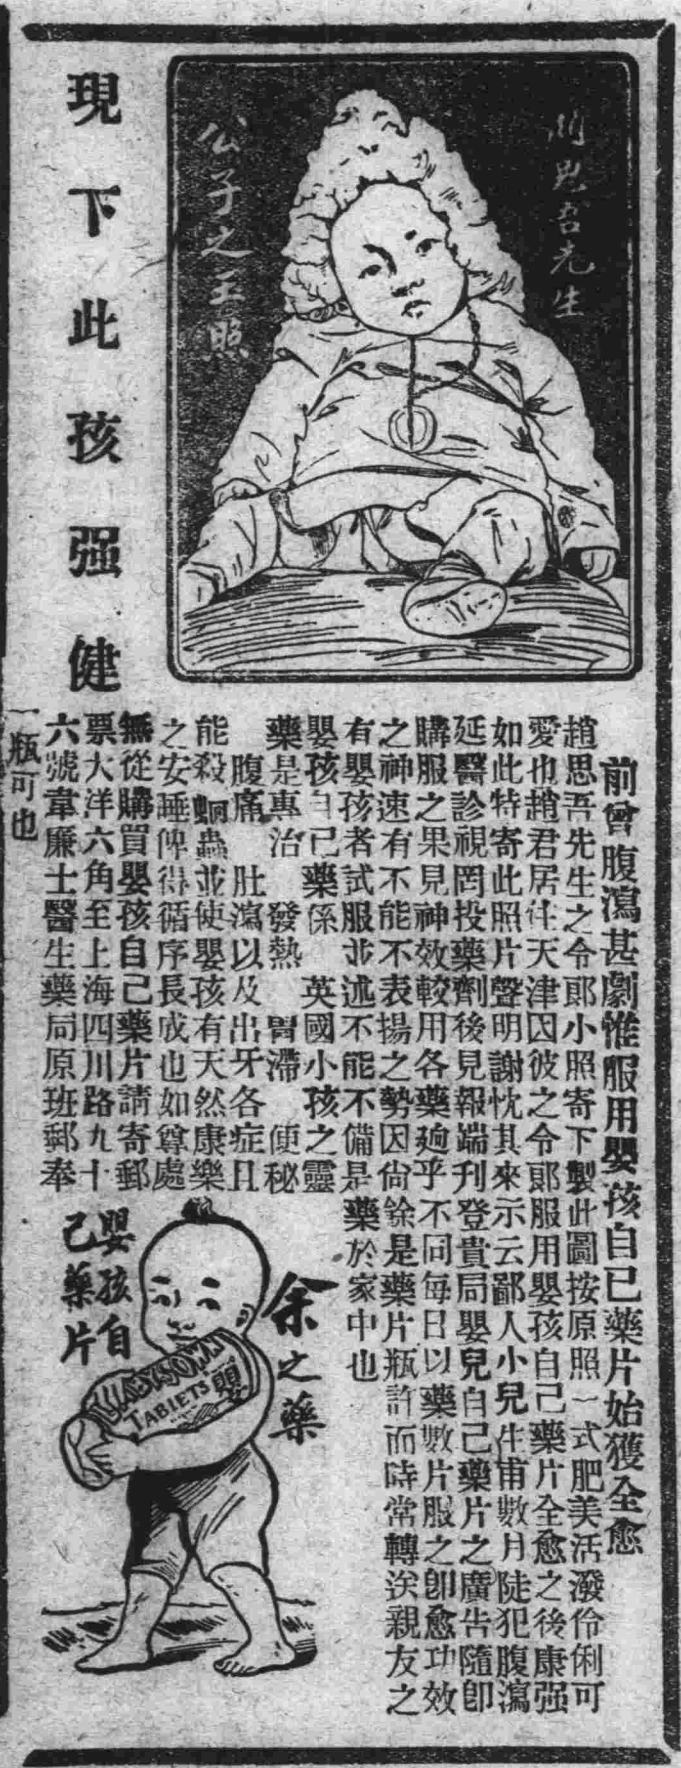 現下此孩强健
思吾先生
公子之玉照
前曾腹瀉甚劇惟服用嬰孩自己藥片始獲全愈
趙思吾先生之令郎小照寄下製此圖按原照一式肥美活潑伶俐可
愛也趙君居住天津因彼之令郎服用嬰孩自己藥片全愈之後康强
如此特寄此照片聲明謝忱其來示云鄙人小兒生甫數月陡犯腹瀉
延醫診視罔投藥劑後見報端刋登貴局嬰兒自己藥片之廣告隨卽
購服之果見神效較用各藥逈乎不同每日以藥數片服之卽愈功效
之神速有不能不表揚之勢因尙餘是藥片瓶許而時常轉送親友之
有嬰孩者試服並述不能不備是藥於家中也
嬰孩自己藥係 英國小孩之靈
藥是專治 發熱 胃滯 便秘
腹痛 肚瀉以及出牙各症且
能殺蛔蟲並使嬰孩有天然康樂
之安睡俾得循序長成也如尊處
無從購買嬰孩自己藥片請寄郵
票大洋六角至上海四川路九十
六號韋廉士醫生藥局原班郵奉
一瓶可也
余之藥
嬰孩自
己藥片
BABYSOWN
TABLETS
嬰